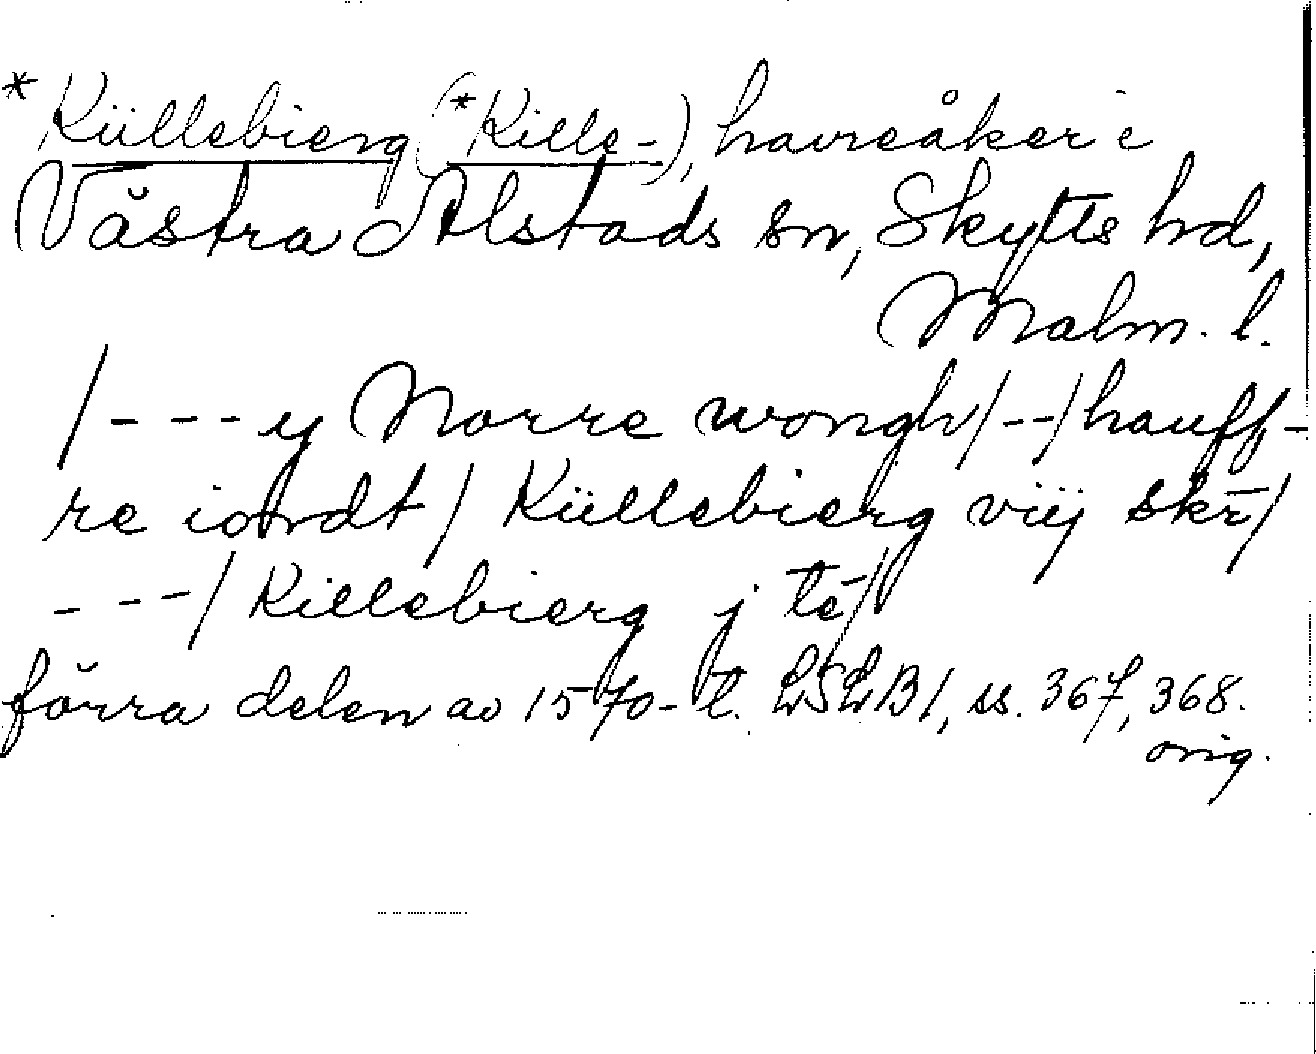 *Küllebierg (*Kille-), havreåker i
Västra Alstads sn, Skytts hd,
Malm. l.
/- - - y Norre wongh/--/hauff-
re iordt/ Küllebierg viij skr̄/
- - -/ Killebierg j tē/
förra delen av 1570-t. LSLB1, ss. 367, 368.
orig.